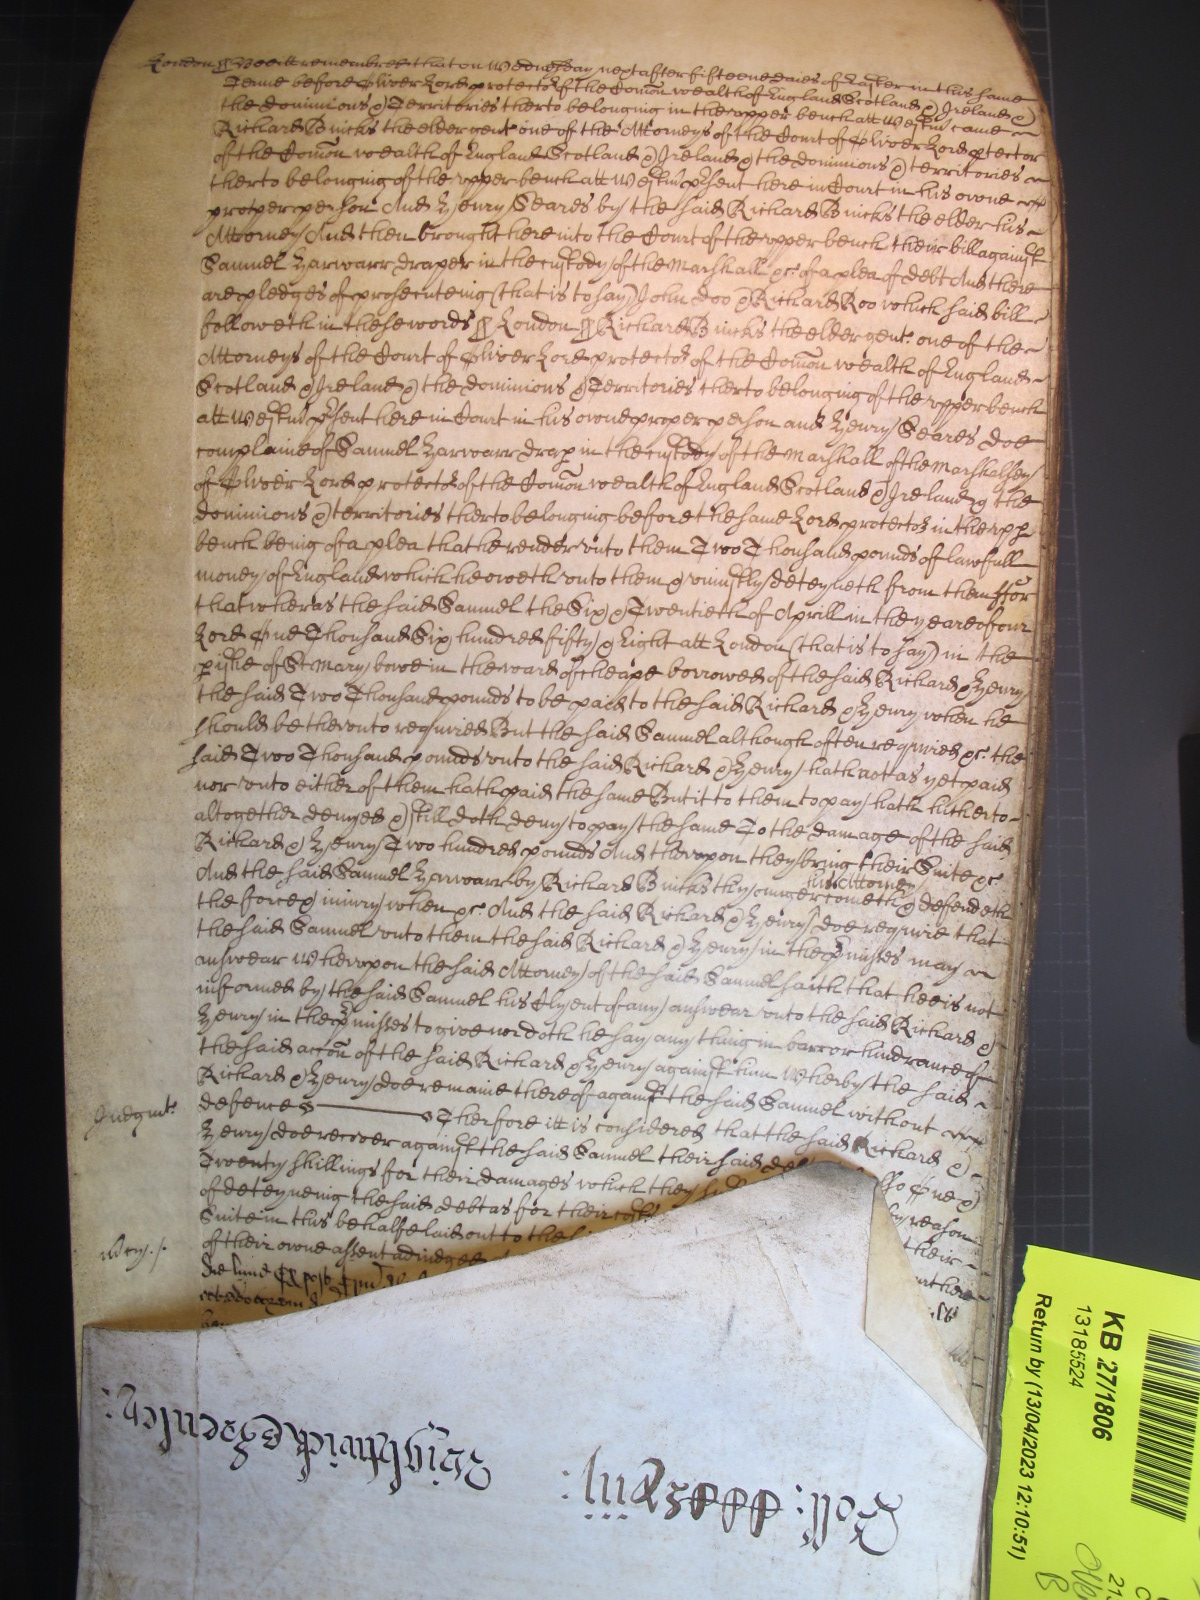 London ss Bee itt remembred that on Wednesday next after fifteene daies of Easter in this same
Terme before Oliver Lord protector of the Comon wealth of England Scotland & Ireland &
the dominions & Territories therto belonging in the upper bench att Westm came
Richard Bincks the elder gent one of the Attorneys of the Court of Oliver Lord protector
of the Comon wealth of England Scotland & Ireland & the dominions & territories
therto belonging of the upper bench att Westm psent here in Court in his owne
proper person And Henry Seares by the said Richard Bincks the elder his
Attorney And then brought here into the Court of the upper bench their bill against
Samuel Harwarr draper in the custody of the Marshall &c of a plea of debt And there
are pledges of prosecuteing (that is to say) John Doo & Richard Roo which said bill
followeth in these words ss London ss Richard Bincks the elder gent. one of the
Attorneys of the Court of Oliver Lord protector of the Comon wealth of England
Scotland & Ireland & the dominions & Territories therto belonging of the upper bench
att Westm psent here in Court in his owne proper person and Henry Seares doe
complaine of Samuel Harwarr drap in the custody of the Marshall of the Marshalsey
of Oliver Lord protector of the Comon wealth of England Scotland & Ireland & the
dominions & territories therto belonging before the same Lord protector in the upp
bench being of a plea that he render unto them Two Thousand pounds of lawfull
money of England which he oweth unto them & uniustly deteyneth from them ffor
that wheras the said Samuel the Six & Twentieth of Aprill in the yeare of our
Lord One Thousand Six hundred fifty & Eight att London (that is to say) in the
pishe of St Mary bowe in the ward of cheape borrowed of the said Richard & Henry
the said Two Thousand pounds to be paid to the said Richard & Henry when he
should be therunto required But the said Samuel although often required &c. the
said Two Thousand pounds unto the said Richard & Henry hath not as yet paid
nor unto either of them hath paid the same But it to them to pay hath hitherto
altogether denyed & still doth deny to pay the same To the damage of the said
Richard & Henry Two hundred pounds And therupon they bring their Suite &c.
And the said Samuel Harwarr by Richard Bincks the younger his Attorney cometh & defendeth
the force & iniury when &c. And the said Richard & Henry doe require that
the said Samuel unto them the said Richard & Henry in the pmisses may
answear Wherupon the said Attorney of the said Samuel saith that hee is not
informed by the said Samuel his Clyent of any answear unto the said Richard &
Henry in the pmisses to give nor doth he say any thing in barr or hindrance of
the said accon of the said Richard & Henry against him Wherby the said
Richard & Henry doe remaine therof against the said Samuel without
Judgmt. defence Therfore itt is considered that the said Richard &
Henry doe recover against the said Samuel their said
Twenty shillings for their damages which they One &
of deteyneing the said debt as for their by reason
Suite in this behalfe laid out to the their
Mercy. of their owne assent adiudged
Roll:
Wightwick & Freuler:
KB 27/1806
13185524
Return by (13/04/2023 12:10:51)